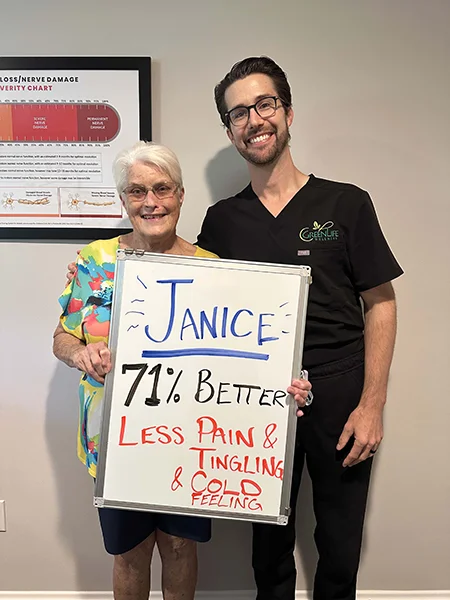 LOSS/NERVE DAMAGE
VERITY CHART
SEVERE
NERVE
DAMAGE
PERMANENT
NERVE
DAMAGE
GREENLIFE
WELLNESS
JANICE
71% BETTER
LESS PAIN &
TINGLING
& COLD
FEELING